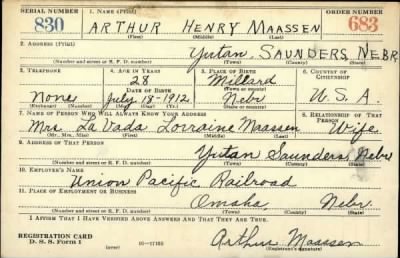 SERIAL NUMBER 1. NAME (Print) ORDER NUMBER
830 ARTHUR HENRY MAASSEN 683
(First) (Middle) (Last)
2. ADDRESS (Print)
Yutan, SAUNDERS, NEBR.
(Number and street or R. F. D. number) (Town) (County) (State)
3. TELEPHONE 4. AGE IN YEARS 5. PLACE OF BIRTH 6. COUNTRY OF CITIZENSHIP
28 Millard
DATE OF BIRTH (Town or county)
None July 18-1912 Nebr U.S.A.
(Exchange) (Number) (Mo.) (Day) (Yr.) (State or country)
7. NAME OF PERSON WHO WILL ALWAYS KNOW YOUR ADDRESS 8. RELATIONSHIP OF THAT PERSON
Mrs. La Vada Lorraine Maassen Wife
(Mr., Mrs., Miss) (First) (Middle) (Last)
9. ADDRESS OF THAT PERSON
Yutan Saunders Nebr
(Number and street or R. F. D. number) (Town) (County) (State)
10. EMPLOYER'S NAME
Union Pacific Railroad
11. PLACE OF EMPLOYMENT OR BUSINESS
Omaha Nebr.
(Number and street or R. F. D. number) (Town) (County) (State)
I AFFIRM THAT I HAVE VERIFIED ABOVE ANSWERS AND THAT THEY ARE TRUE.
REGISTRATION CARD
D. S. S. Form 1 (over) 16-17105 Arthur Maassen
(Registrant's signature)